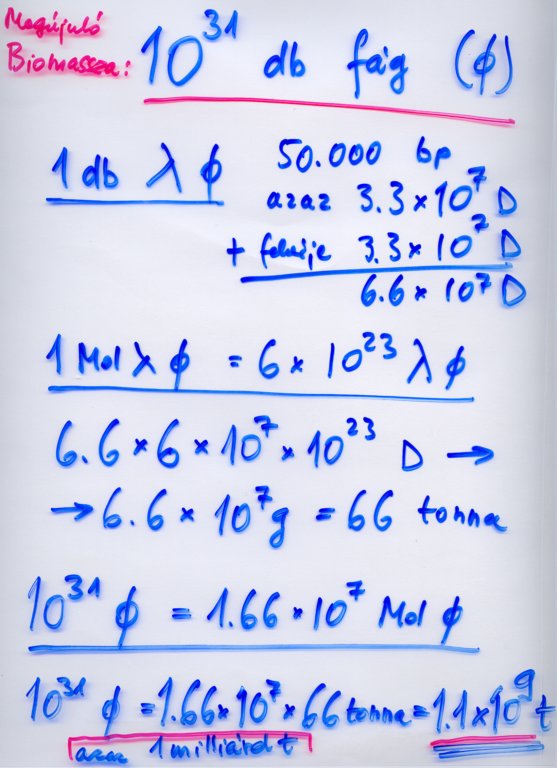 Megújuló
Biomassza: 10³¹ db fág (ϕ)
1 db λ ϕ 50.000 bp
azaz 3.3×10⁷ D
+ fehérje 3.3×10⁷ D
6.6×10⁷ D
1 Mol λ ϕ = 6×10²³ λ ϕ
6.6×6×10⁷×10²³ D →
→ 6.6×10⁷g = 66 tonna
10³¹ ϕ = 1.66×10⁷ Mol ϕ
10³¹ ϕ = 1.66×10⁷×66 tonna = 1.1×10⁹ t
azaz 1 milliárd t